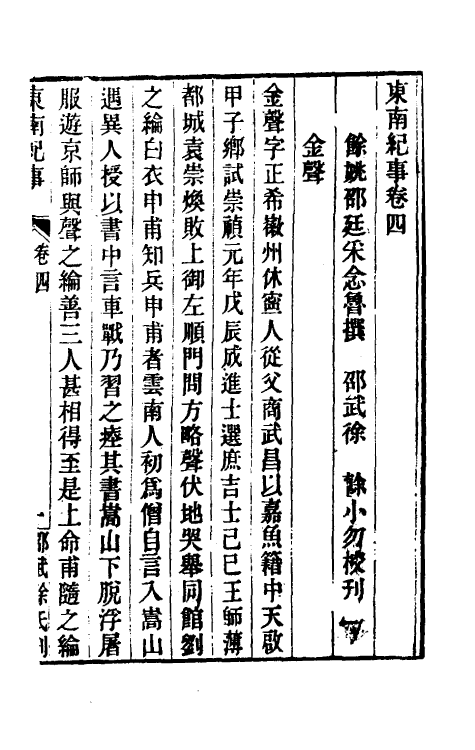 東南紀事卷四
餘姚邵廷采念魯撰　邵武徐　榦小勿校刊
金聲
金聲字正希徽州休寧人從父商武昌以嘉魚籍中天啟
甲子鄉試崇禎元年戊辰成進士選庶吉士己巳王師薄
都城袁崇煥敗上御左順門問方略聲伏地哭舉同館劉
之綸白衣申甫知兵申甫者雲南人初為僧自言入嵩山
遇異人授以書中言車戰乃習之瘞其書嵩山下脫浮屠
服遊京師與聲之綸善三人甚相得至是上命甫隨之綸
東南紀事　卷四　一　邵武徐氏刊